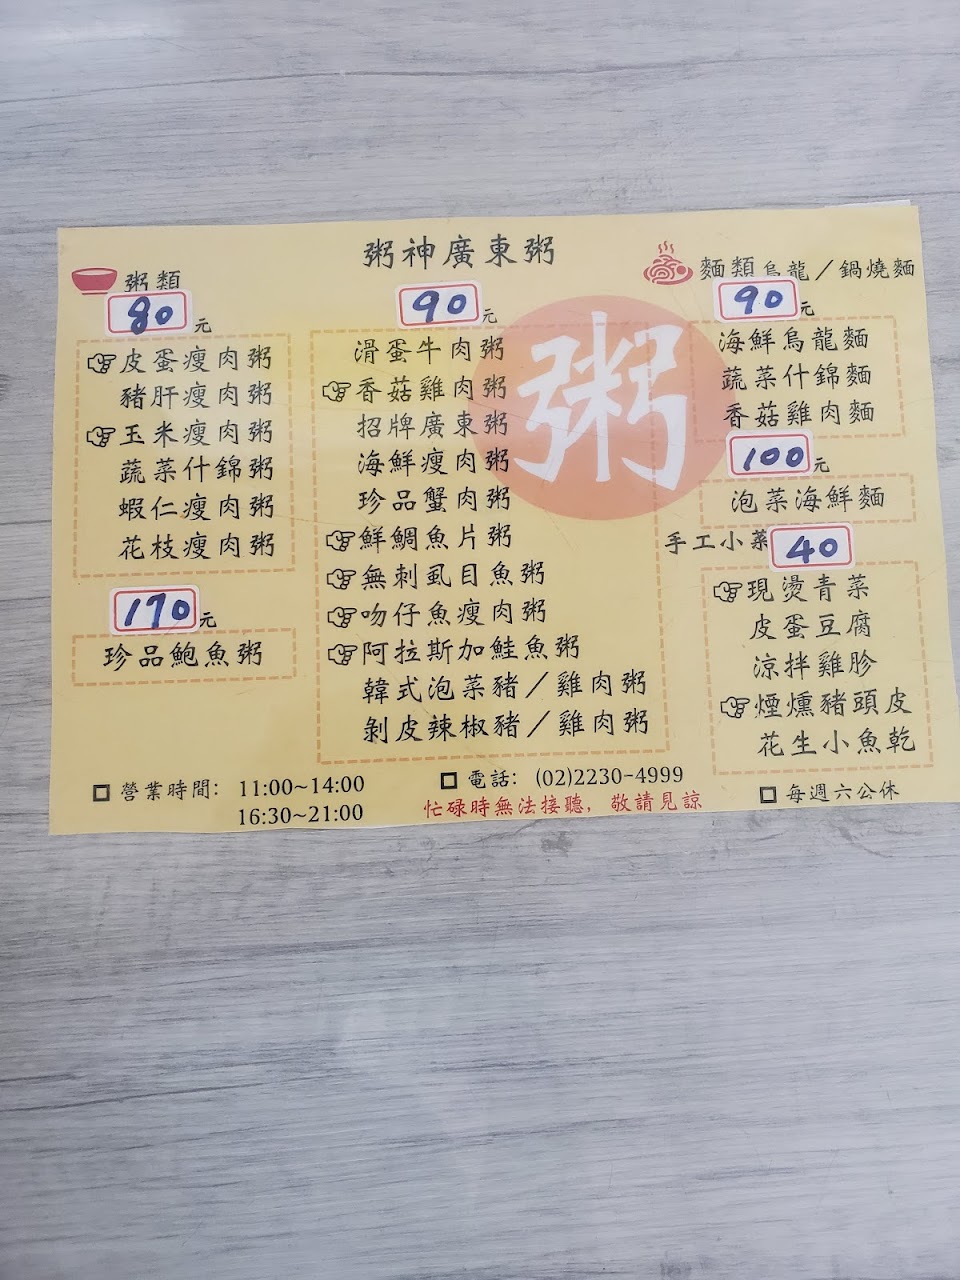 粥神廣東粥
粥類
80元
皮蛋瘦肉粥
豬肝瘦肉粥
玉米瘦肉粥
蔬菜什錦粥
蝦仁瘦肉粥
花枝瘦肉粥
170元
珍品鮑魚粥
90元
滑蛋牛肉粥
香菇雞肉粥
招牌廣東粥
海鮮瘦肉粥
珍品蟹肉粥
鮮鯛魚片粥
無刺虱目魚粥
吻仔魚瘦肉粥
阿拉斯加鮭魚粥
韓式泡菜豬/雞肉粥
剝皮辣椒豬/雞肉粥
粥
麵類烏龍/鍋燒麵
90元
海鮮烏龍麵
蔬菜什錦麵
香菇雞肉麵
100元
泡菜海鮮麵
手工小菜 40
現燙青菜
皮蛋豆腐
涼拌雞胗
煙燻豬頭皮
花生小魚乾
營業時間: 11:00~14:00
16:30~21:00
電話: (02)2230-4999
忙碌時無法接聽, 敬請見諒
每週六公休